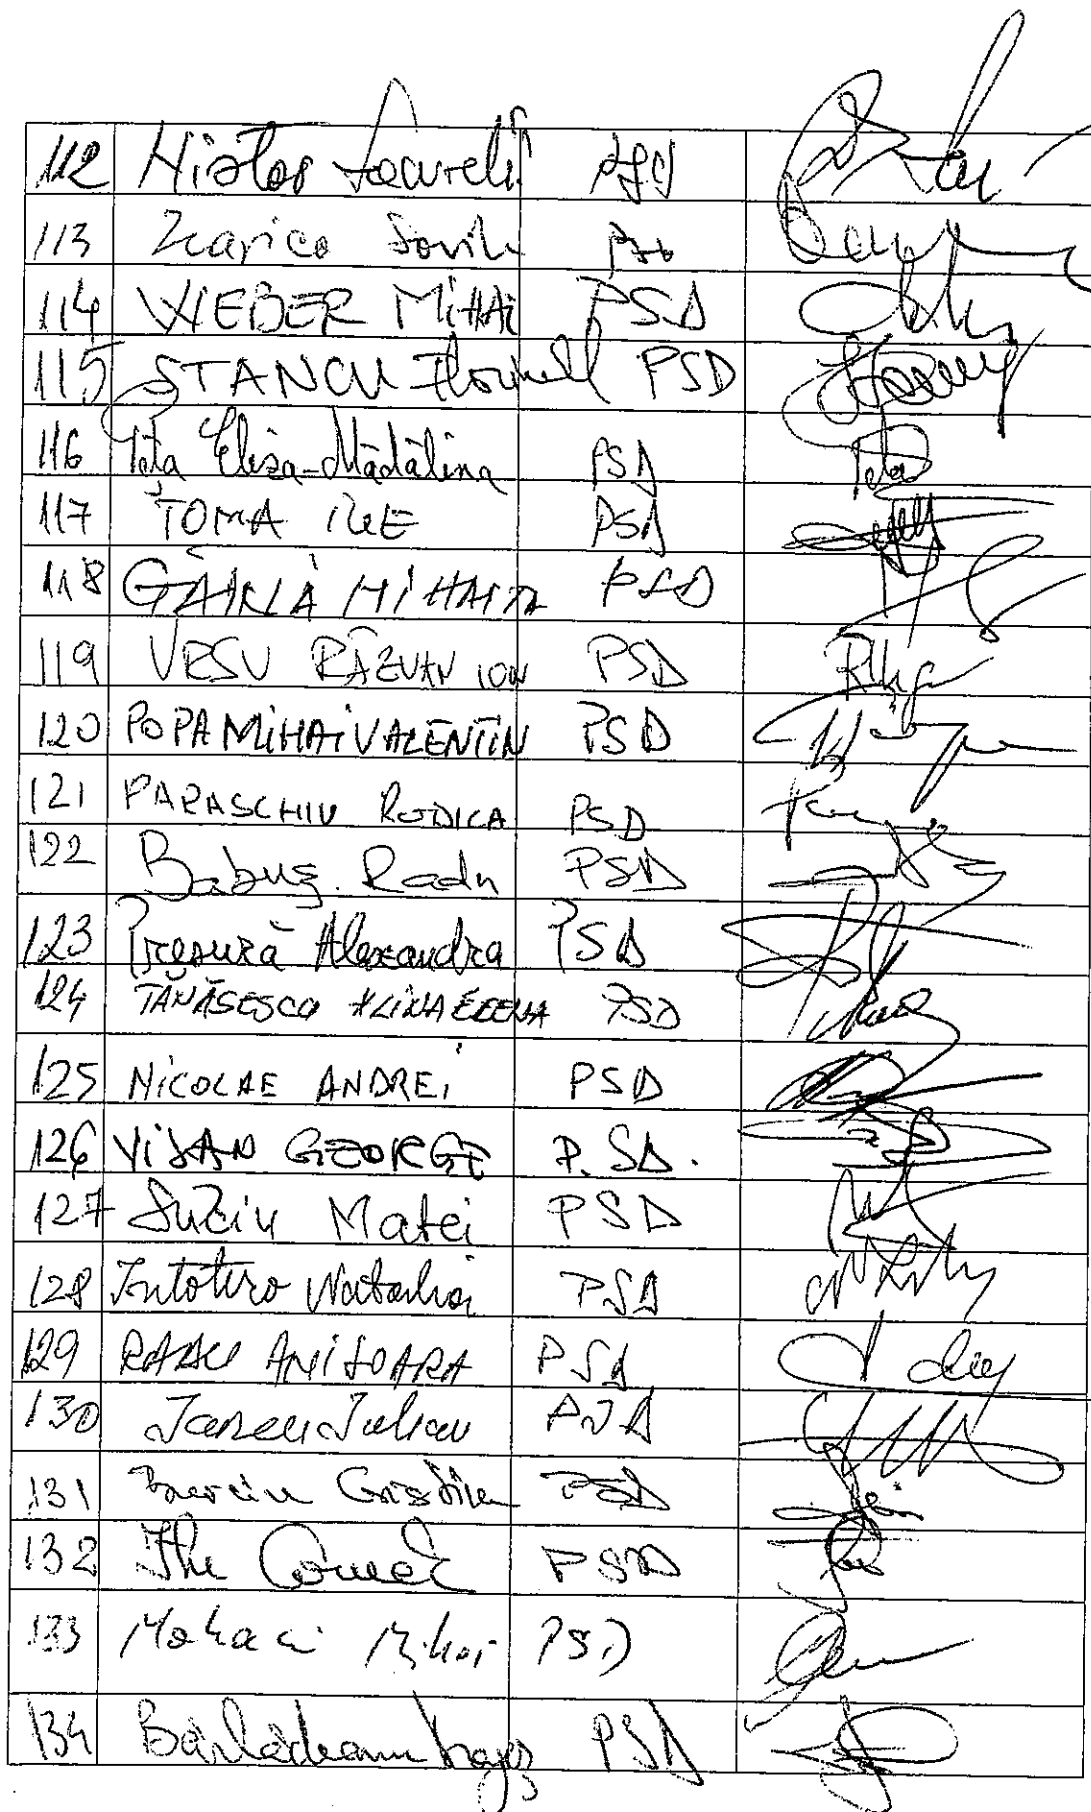 112 Hristos PSD
113 Zlarica Sorin PSD
114 WEBER MIHAI PSD
115 STANCU Florinell PSD
116 Peța Eliza-Mădălina PSD
117 TOMA ILIE PSD
118 GĂINĂ MIHĂIȚĂ PSD
119 URSU RĂZVAN ION PSD
120 POPA MIHAI VALENTIN PSD
121 PARASCHIV RODICA PSD
122 Babuș Radu PSD
123 Presură Alexandra PSD
124 TĂNĂSESCU ALINA ELENA PSD
125 NICOLAE ANDREI PSD
126 VIȘAN GEORGE P.SD.
127 Suciu Matei PSD
128 Intotero Natalia PSD
129 RADU ANIȘOARA PSD
130 Iancu Iulian PSD
131 PSD
132 Itu Cornel PSD
133 Mohaci Mihai PSD
134 Bârlădeanu PSD